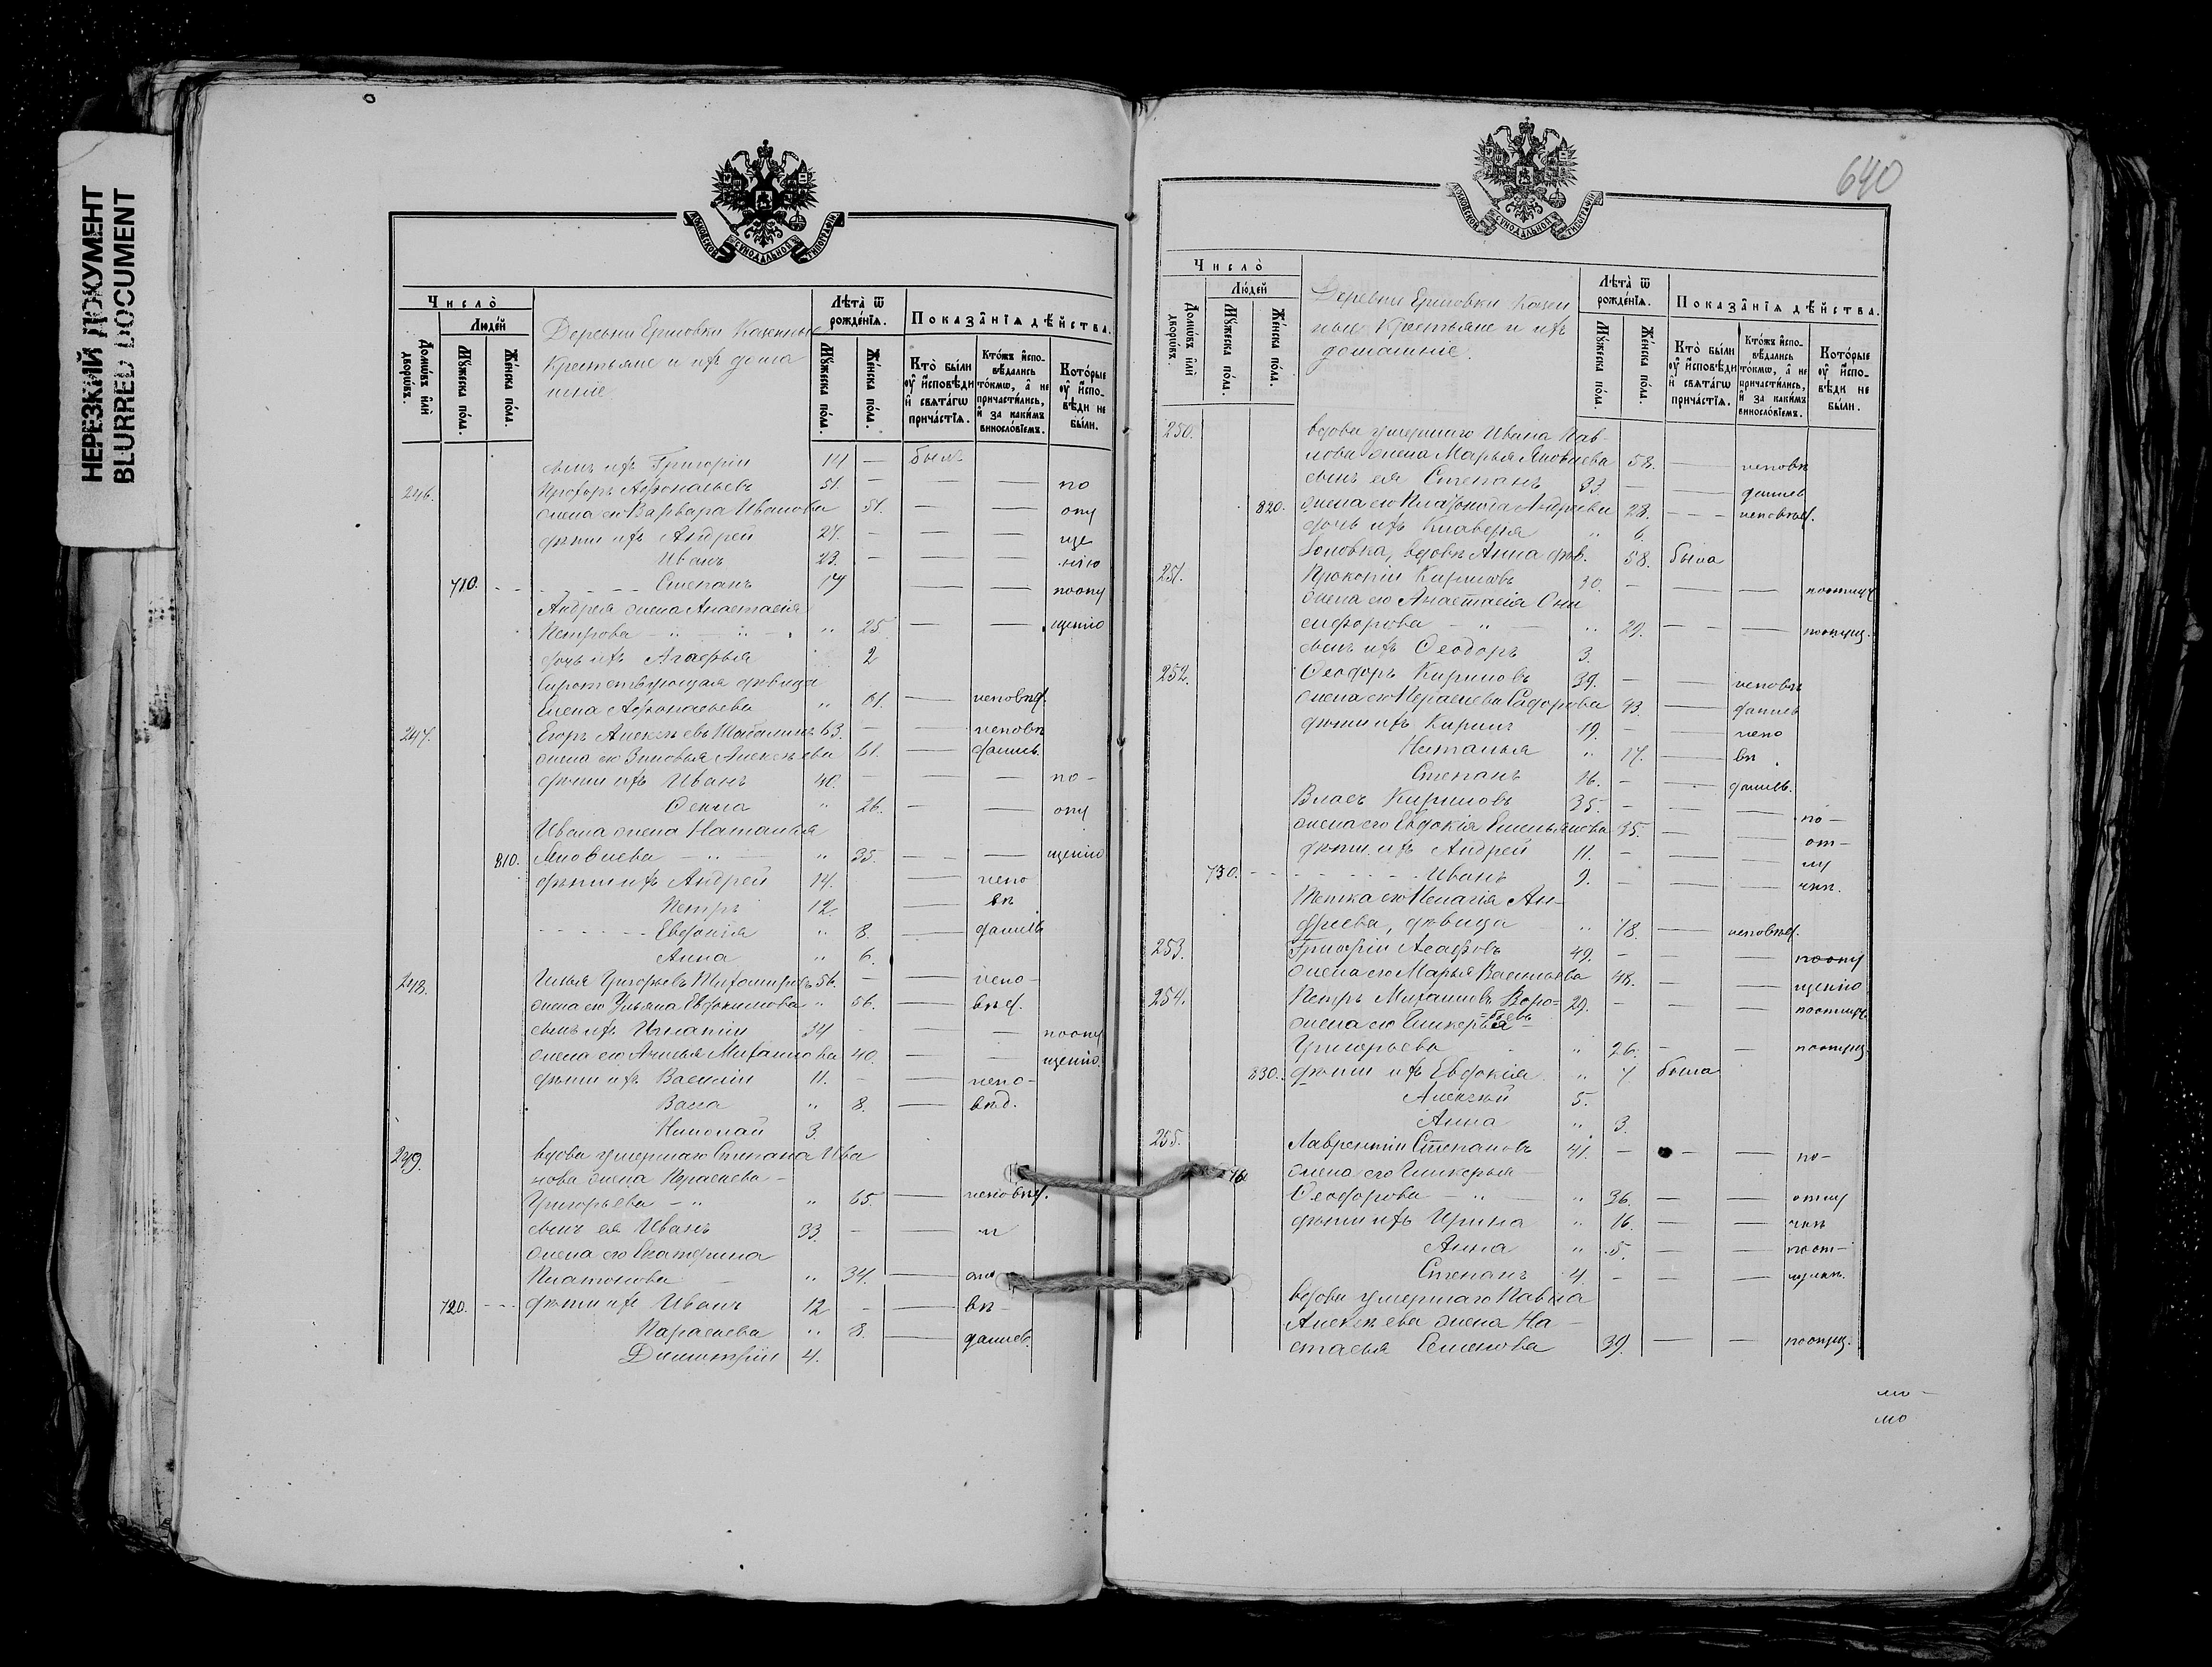 НЕРЕЗКИЙ ДОКУМЕНТ
BLURRED DOCUMENT
МОСКОВСКОЙ СУНОДАЛЬНОЙ ТИПОГРАФІИ
Число̀
Людей
Домѡвъ или дворѡвъ.
Мꙋжеска пола.
Женска пола.
Деревни Ершовки Казенные
Крестьяне и ихъ дома
шніе
Лѣта̀ ѿ рожденїѧ.
Мꙋжеска пола.
Женска пола.
Показанїѧ дѣйства.
Кто̀ были оу исповѣди и свѧтагѡ причастїѧ.
Ктожъ исповѣдались токмѡ, а не причастились, и за какимъ винословїемъ.
Которые оу исповѣди не были.
сынъ ихъ Григорій 14 — былъ
246. Прохоръ Афонасьевъ 51. — — — по
жена его Варвара Иванова 51. — — опу
дѣти ихъ Андрей 27. — — — ще
Иванъ 23. — — — нію
710. Степанъ 17 — — поопу
Андрея жена Анастасія
Петрова „ 25 — — щенію
дочь ихъ Агафья 2
Сиротствующая дѣвица
Елена Афонасьева „ 61. — исповѣд.
247. Егоръ Алексѣевъ Шабалинъ 63. — — исповѣ
жена его Зиновья Алексѣева 61. — дались
дѣти ихъ Иванъ 40. — — — по-
26. — — опу
Ивана жена Наталья
810. Яковлева „ 35. — — щенію
дѣти ихъ Андрей 14. — испо
Петръ 12. — вѣ
Евдокія „ 8. — дались
Анна „ 6.
248. Илья Григорьевъ 56. — — испо-
жена его Ульяна Евдокимова „ 56. — вѣд.
сынъ ихъ Игнатій 34 — — — поопу
жена его Михайлова 40. — — щенію.
дѣти ихъ Василій 11. — — испо-
Васса „ 8. — вѣд.
Николай 3.
249. вдова умершаго Степана Ива
нова жена Параскева —
Григорьева — „ „ 65. — исповѣд.
сынъ ея Иванъ 33. — —
жена его Екатерина
Платонова — „ 34. —
720. дѣти ихъ Иванъ 12 — — вѣ-
Параскева „ 8. — дались.
Димитрій 4.
640
МОСКОВСКОЙ СУНОДАЛЬНОЙ ТИПОГРАФІИ
Число̀
Людей
Домѡвъ или дворѡвъ.
Мꙋжеска пола.
Женска пола.
Деревни Ершовки Казен
ные Крестьяне и ихъ
домашніе.
Лѣта̀ ѿ рожденїѧ.
Мꙋжеска пола.
Женска пола.
Показанїѧ дѣйства.
Кто̀ были оу исповѣди и свѧтагѡ причастїѧ.
Ктожъ исповѣдались токмѡ, а не причастились, и за какимъ винословїемъ.
Которые оу исповѣди не были.
250. вдова умершаго Ивана Пав-
лова жена Марья Яковлева 58. — исповѣ
сынъ ея Степанъ 33. — — дались
820. жена его Андреева 28. — исповѣд.
дочь ихъ Клавдія „ 6.
вдова Анна 58. была
251. Прокопій Кириловъ 30. — — — поотлуч
жена его Анастасія Они
сифорова — „ „ 29. — — поопущ.
сынъ ихъ Ѳеодоръ 3.
252. Ѳеодоръ Кириловъ 39. — — исповѣ
жена его Параскева 43. — дались
дѣти ихъ Кирилъ 19. — — испо
Наталья „ 17. — вѣ
Степанъ 16. — — дались.
Власъ Кириловъ 35 — — — по-
жена его Евдокія Емельянова 35. — — от-
дѣти ихъ Андрей 11. — — — лу
730. Иванъ 9. — — — чкѣ.
Тетка его Пелагія Ан-
дреева, дѣвица „ 78. — исповѣд.
253. Григорій 49. — — — поопу
жена его Марья Васильева 48. — — щенію
254. Петръ Михайловъ Воро- 29. — — — поотлуч.
бьевъ
жена его Гликерья
Григорьева „ 26. — — поопущ.
830. дѣти ихъ Евдокія „ 7 была
Алексѣй 5.
Анна „ 3.
255. Лаврентій Степановъ 41. — — — по-
жена его Гликерья
Ѳеодорова — „ „ 36. — — отлу
дѣти ихъ Ирина „ 16. — — чкѣ
Анна „ 5. — — поот-
Степанъ 4. — — — лучкѣ.
вдова умершаго Павла
Алексѣева жена На-
стасья Семенова 39. — — поопущ.